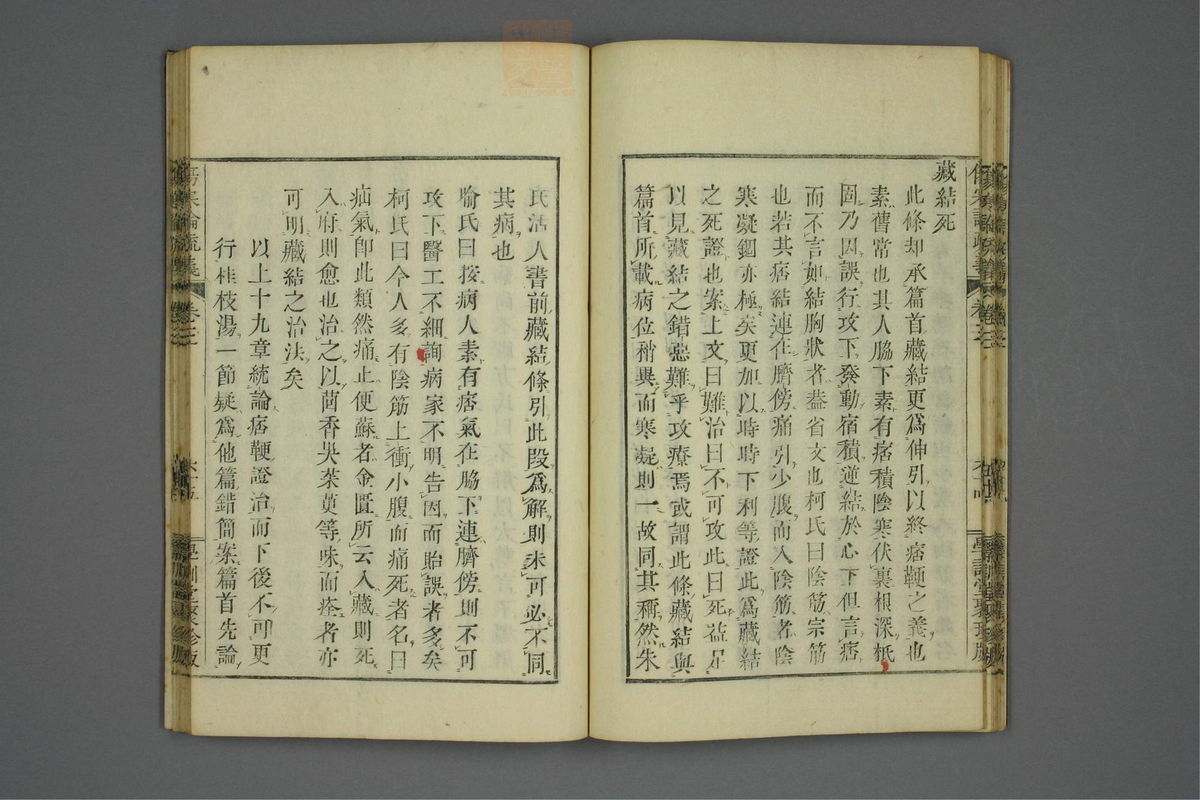 藏結死
此條却承篇首藏結更爲伸引以終痞鞕之義也
素舊常也其人脇下素有痞積陰寒伏裏根深柢
固乃因誤行攻下發動宿積逆結於心下但言痞
而不言如結胸狀者蓋省文也柯氏曰陰筋宗筋
也若其痞結連在臍傍痛引少腹而入陰筋者陰
寒凝錮亦極矣更加以時時下利等證此爲藏結
之死證也案上文曰難治曰不可攻此曰死益足
以見藏結之錯惡難乎攻療焉或謂此條藏結與
篇首所載病位稍異而寒凝則一故同其稱然朱
氏活人書前藏結條引此段爲解則未可必不同
其病也
喻氏曰按病人素有痞氣在脇下連臍傍則不可
攻下醫工不細詢病家不明告因而貽誤者多矣
柯氏曰今人多有陰筋上衝小腹而痛死者名曰
疝氣卽此類然痛止便蘇者金匱所云入藏則死
入府則愈也治之以茴香吳茱萸等味而痊者亦
可明藏結之治法矣
以上十九章統論痞鞕證治而下後不可更
行桂枝湯一節疑爲他篇錯簡案篇首先論
傷寒論疏義 卷三
學訓堂聚珍版